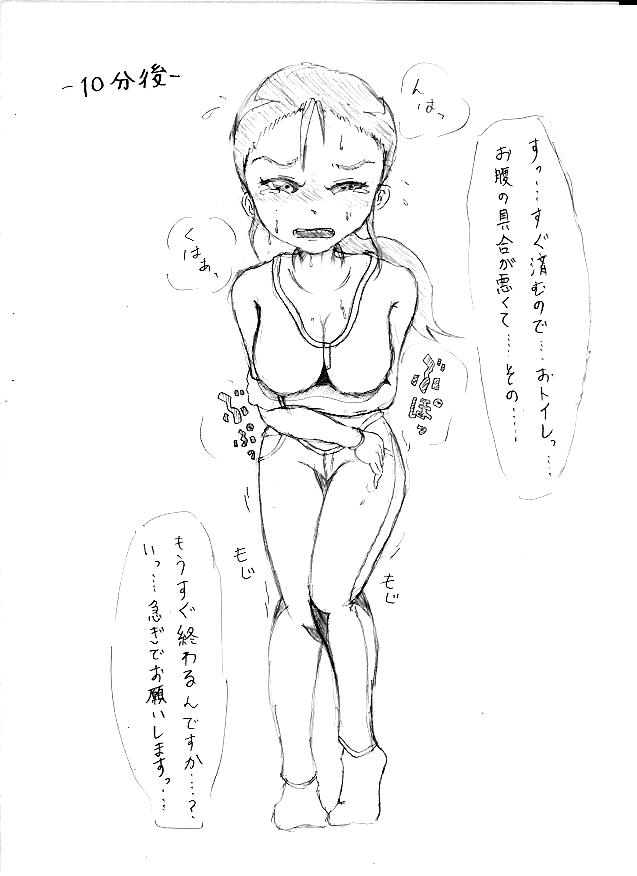 -10分後-
んはっ
すっ……すぐ済むので……おトイレっ……
お腹の具合が悪くて……その……
くはぁっ
ぶぽっ
ぶぶっ
もじ
もじ
もうすぐ終わるんですか……?
いっ……急ぎでお願いしますっ……